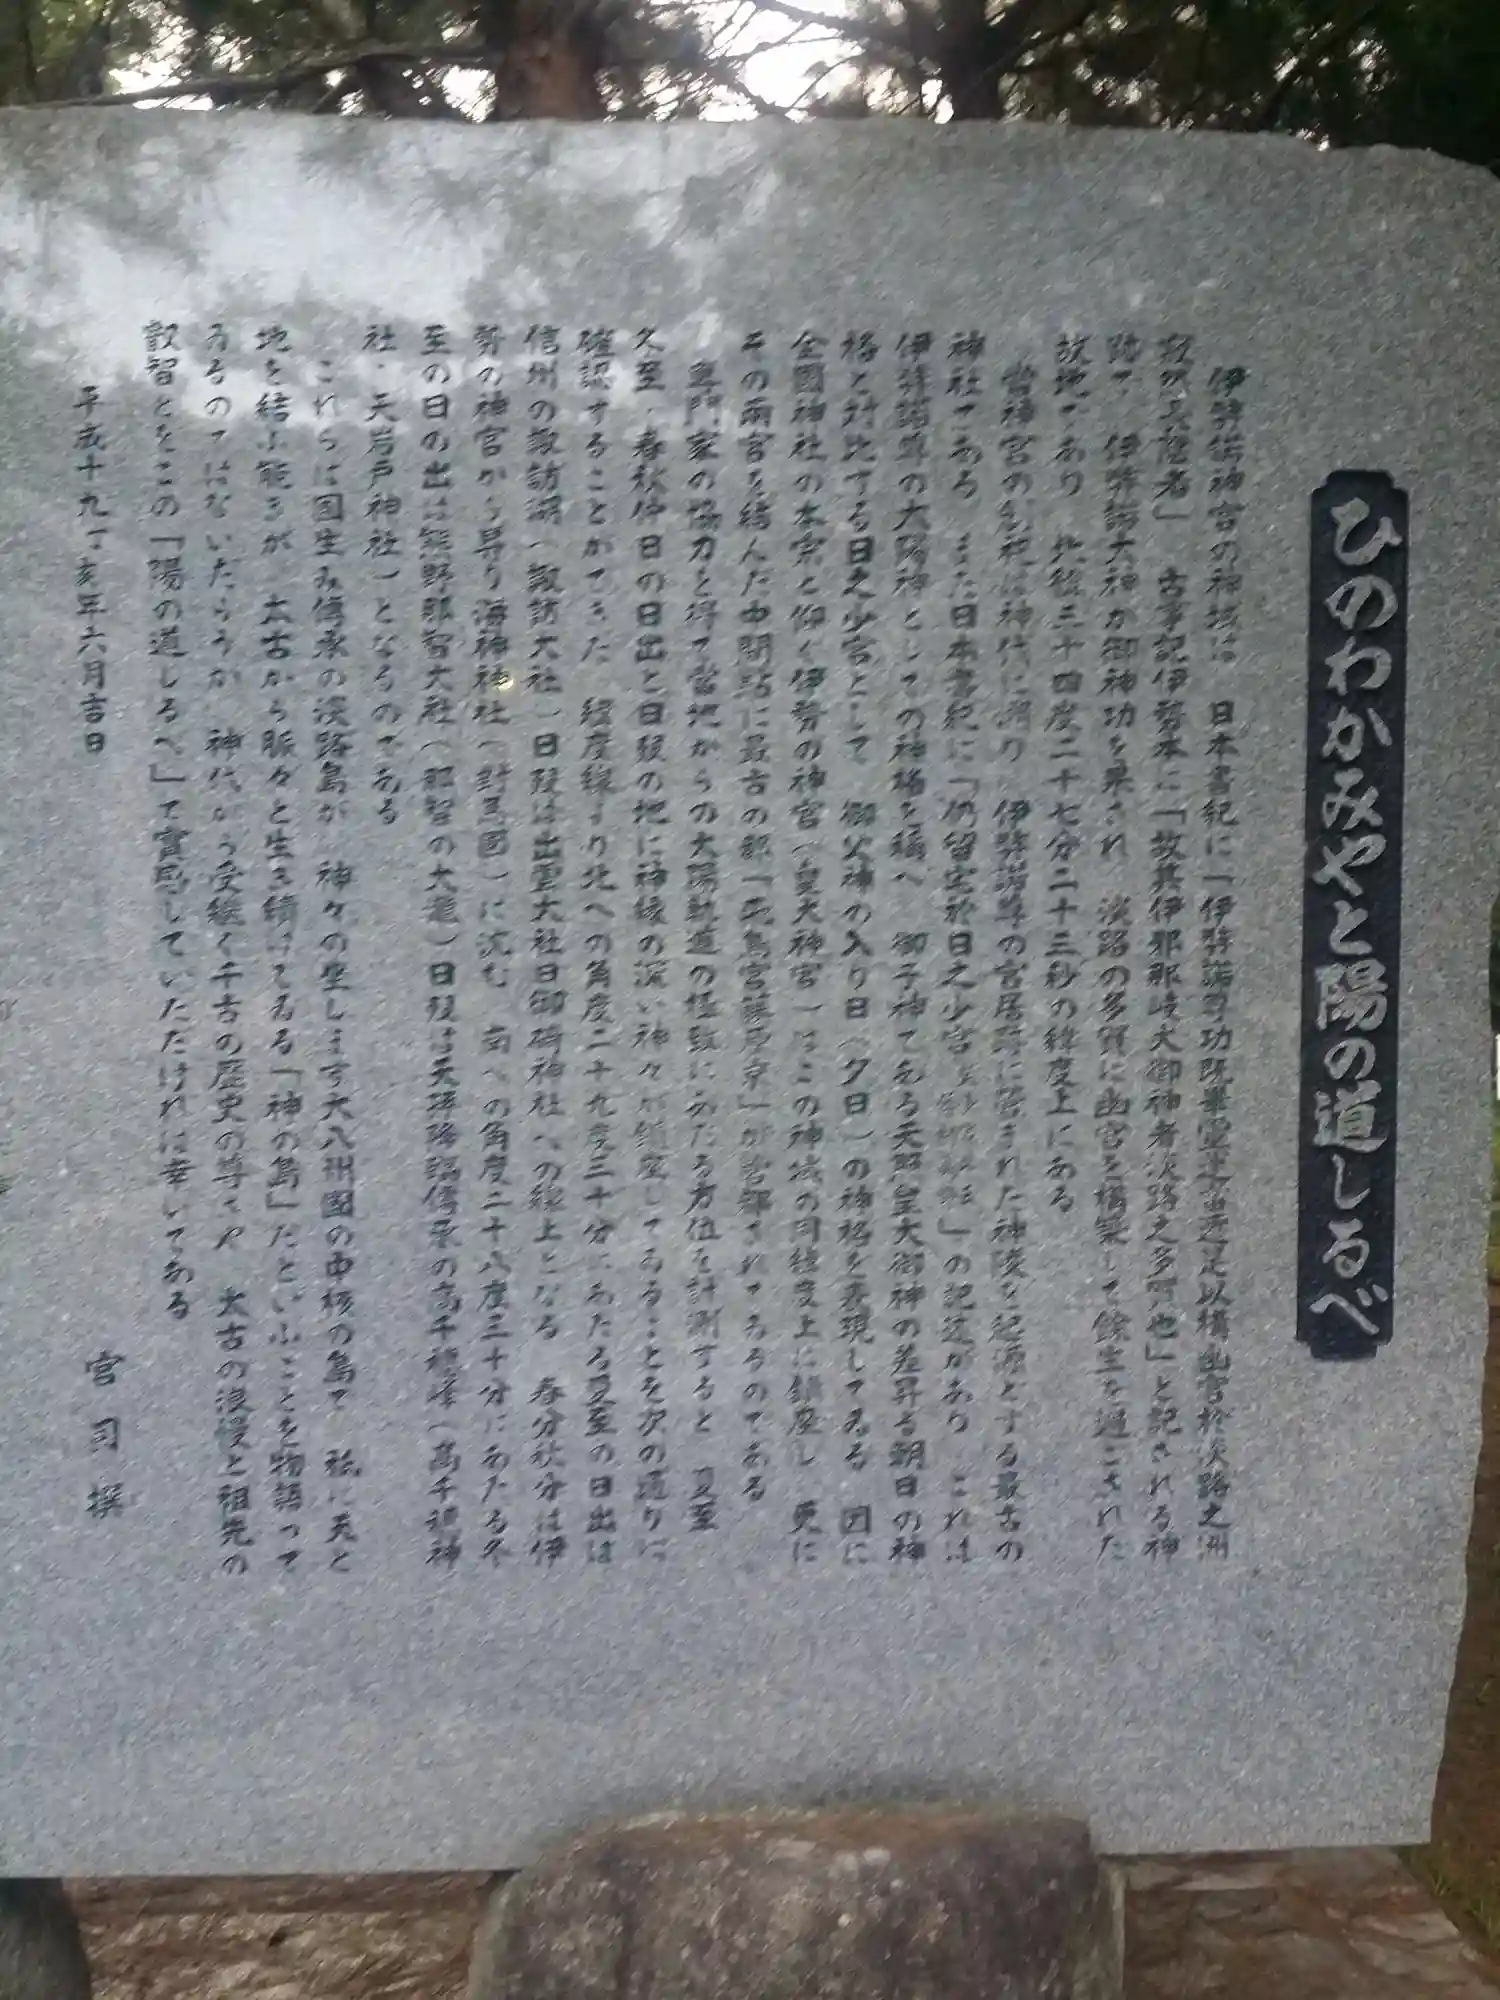 ひのわかみやと陽の道しるべ
伊弉諾神宮の神域は 日本書紀に「伊弉諾尊功既畢霊運當遷是以構幽宮於淡路之洲
寂然長隠者」 古事記伊勢本に「故其伊耶那岐大御神者淡路之多賀也」と記される神
跡で 伊弉諾大神が御神功を果され 淡路の多賀に幽宮を構築して餘生を過ごされた
故地であり 北緯三十四度二十七分二十三秒の緯度上にある
當神宮の創祀は神代に溯り 伊弉諾尊の宮居跡に營まれた神陵を起源とする最古の
神社である また日本書紀に「仍留宅於日之少宮 」の記述があり これは
伊弉諾尊の太陽神としての神格を稱へ 御子神である天照皇大御神の差昇る朝日の神
格と対比する日之少宮として 御父神の入り日(夕日)の神格を表現してゐる 因に
全國神社の本宗と仰ぐ伊勢の神宮(皇大神宮)はこの神域の同緯度上に鎮座し 更に
その両宮を結んだ中間點に最古の都「飛鳥宮藤原京」が営都されてゐるのである
専門家の協力を得て當地からの太陽軌道の極致にあたる方位を計測すると 夏至・
冬至・春秋仲日の日出と日没の地に神縁の深い神々が鎮座してゐることを次の通りに
確認することができた 經度線より北への角度二十九度三十分にあたる夏至の日出は
信州の諏訪湖(諏訪大社)日没は出雲大社日御碕神社への線上となる 春分秋分は伊
勢の神宮から昇り海神神社(対馬國)に沈む 南への角度二十八度三十分にあたる冬
至の日の出は熊野那智大社(那智の大瀧)日没は天孫降臨傳承の高千穂峰(高千穂神
社・天岩戸神社)となるのである
これらは国生み傳承の淡路島が 神々の坐します大八洲國の中核の島で 祇に天と
地を結ぶ能きが 太古から脈々と生き續けてゐる「神の島」だといふことを物語って
ゐるのではないだらうか 神代から受継ぐ千古の歴史の尊さや 太古の浪漫と祖先の
叡智とをこの「陽の道しるべ」で實感していただければ幸いである
平成十九丁亥年六月吉日
宮司 撰